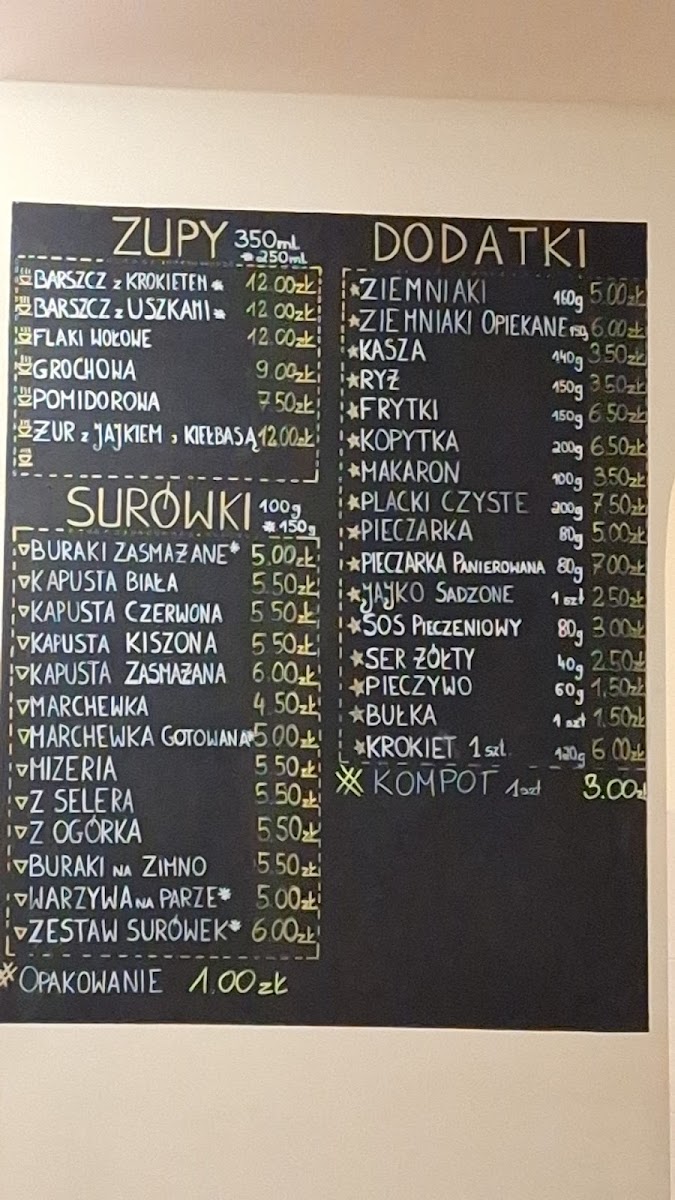 ZUPY 350ml
* 250ml
BARSZCZ z KROKIETEM * 12.00zł
BARSZCZ z USZKAMI * 12.00zł
FLAKI WOŁOWE 12.00zł
GROCHOWA 9.00zł
POMIDOROWA 7.50zł
ŻUR z JAJKIEM i KIEŁBASĄ 12.00zł
SURÓWKI 100g
* 150g
BURAKI ZASMAŻANE* 5.00zł
KAPUSTA BIAŁA 5.50zł
KAPUSTA CZERWONA 5.50zł
KAPUSTA KISZONA 5.50zł
KAPUSTA ZASMAŻANA 6.00zł
MARCHEWKA 4.50zł
MARCHEWKA GOTOWANA* 5.00zł
MIZERIA 5.50zł
Z SELERA 5.50zł
Z OGÓRKA 5.50zł
BURAKI NA ZIMNO 5.50zł
WARZYWA NA PARZE* 5.00zł
ZESTAW SURÓWEK* 6.00zł
OPAKOWANIE 1.00zł
DODATKI
ZIEMNIAKI 160g 5.00zł
ZIEMNIAKI OPIEKANE 150g 6.00zł
KASZA 140g 3.50zł
RYŻ 150g 3.50zł
FRYTKI 150g 6.50zł
KOPYTKA 200g 6.50zł
MAKARON 100g 3.50zł
PLACKI CZYSTE 200g 7.50zł
PIECZARKA 80g 5.00zł
PIECZARKA PANIEROWANA 80g 7.00zł
JAJKO SADZONE 1 szt 2.50zł
SOS PIECZENIOWY 80g 3.00zł
SER ŻÓŁTY 40g 2.50zł
PIECZYWO 60g 1,50zł
BUŁKA 1 szt 1.50zł
KROKIET 1 szt 120g 6.00zł
KOMPOT 1 szt 3.00zł